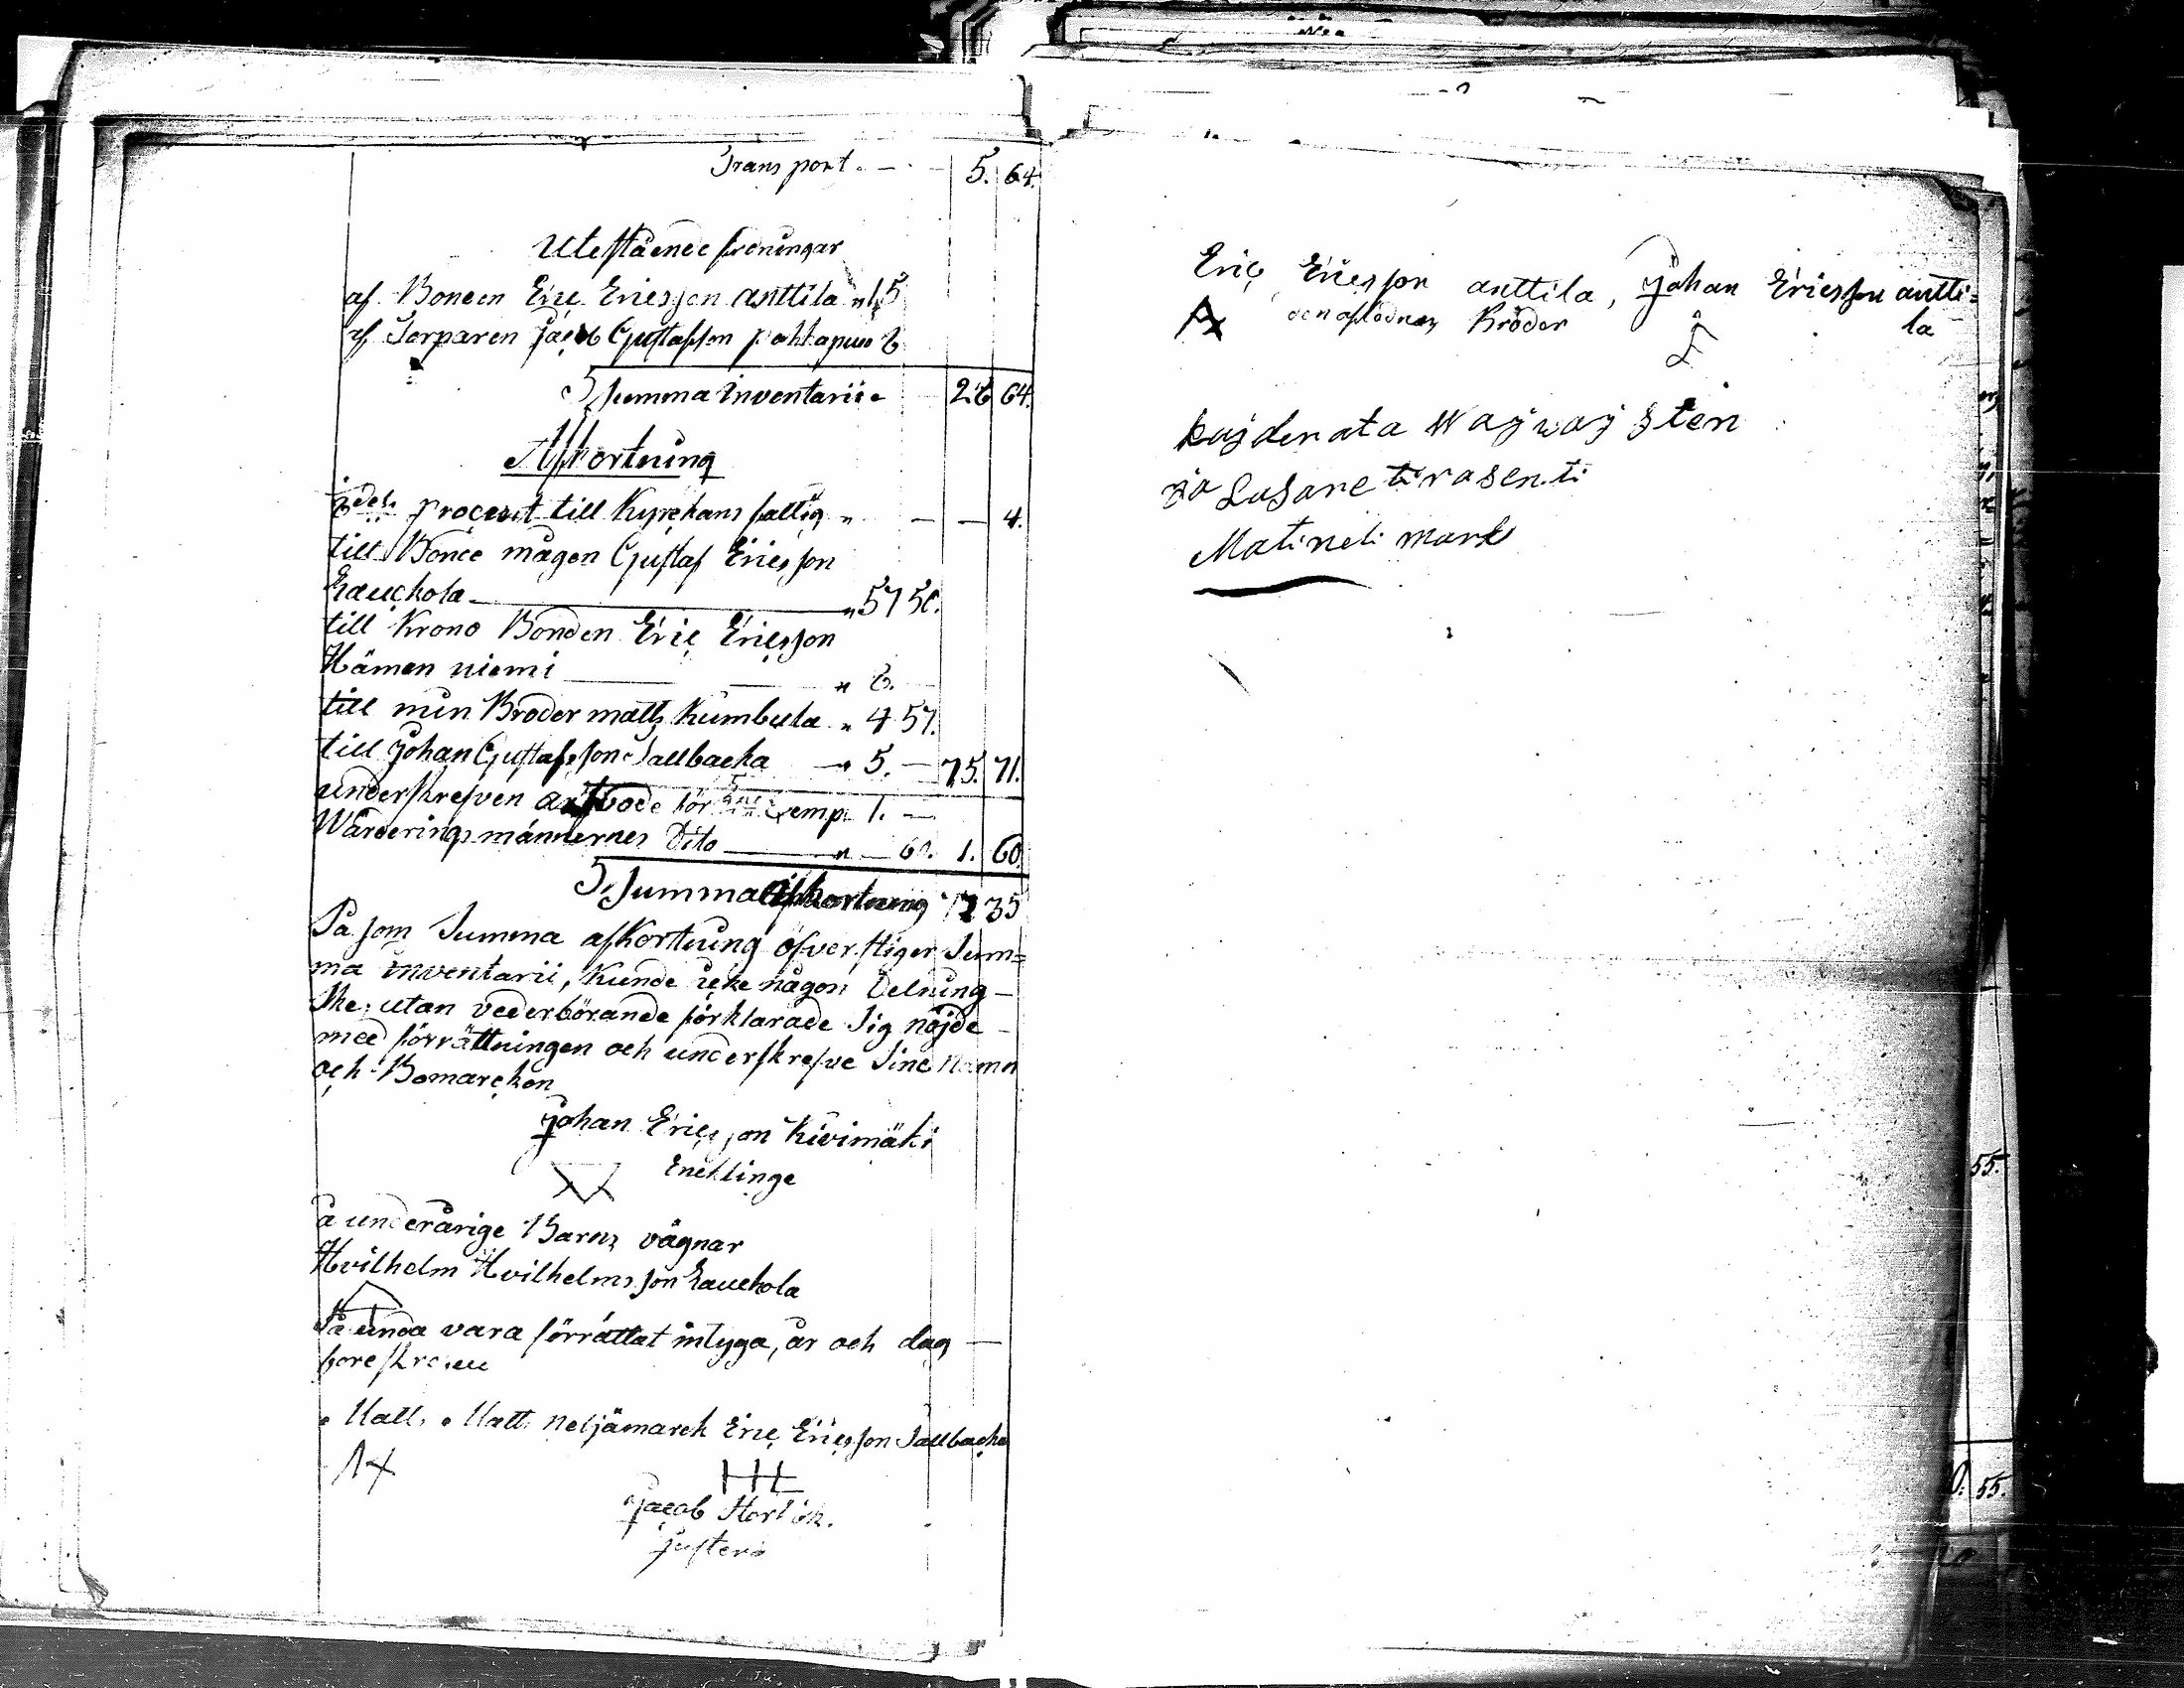 Transport. — 5. 64.
Utestående fordringar
af Bonden Eric Ericsson Anttila " 15
af Torparen Jacob Gustafsson 6
Summa Inventarii 26 64.
Afkortning
procent till Kyrckans fattig " — — 4.
till Bonde mågen Gustaf Ericsson
Lauckola — " 57 50.
till Krono Bonden Eric Ericsson
Hämenniemi — " 6. —
till min Broder Matts Kumbula " 4 57.
till Johan Gustafsson Tallbacka — 5. — 75. 71.
underskrefven arfvode för Exemp. 1. —
Wärderingsmännernes Dito — " — 60. 1. 60.
Summa afkortning 77 35
Så som Summa afkortning öfverstiger Sum=
ma inventarii, kunde icke någon Delning —
ske, utan vederbörande förklarade Sig nöjde —
med förrättningen och underskrefve Sine Namn
och Bomärcken
Johan Ericsson Kivimäki
Encklinge
å underårige Barns vägnar
Hvilhelm Hvilhelmsson Lauckola
Så unda vara förrättat intyga, år och dag —
föreskrefven
Matts Matts. Neljämarck Eric Ericsson Tallbacka
Jacob
Eric Ericsson anttila, Johan Ericsson antti=
den aflednes Bröder la
kusdenata Wajwajsten
ja Lasaretirasenti
Matineli mark
55.
55.